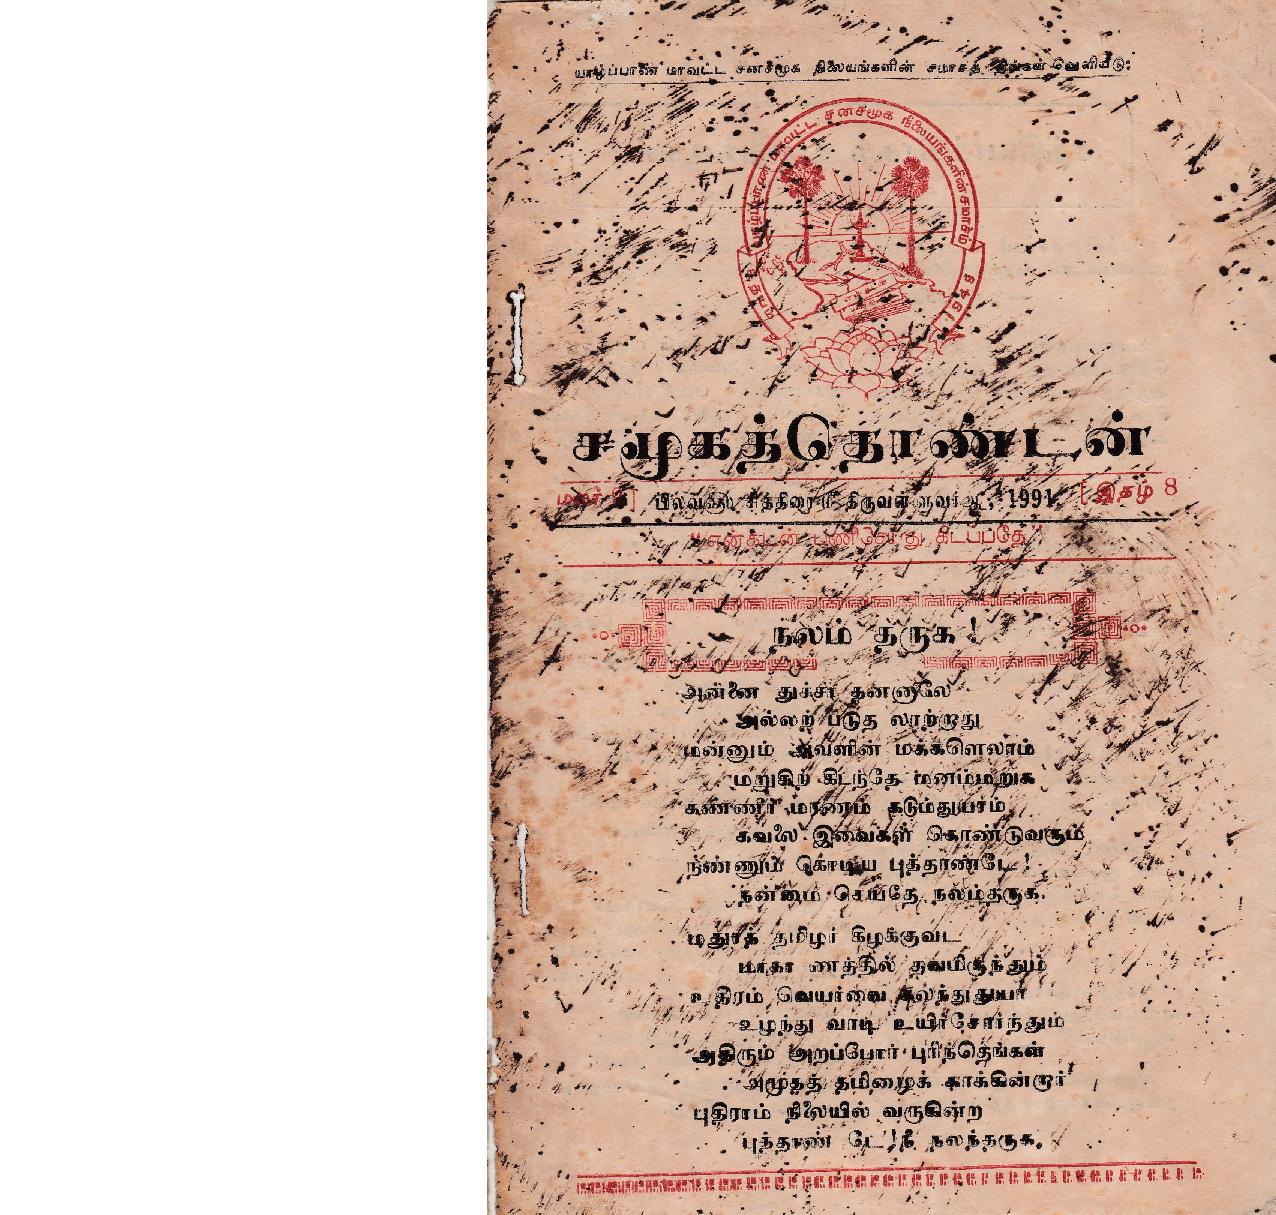 யாழ்ப்பாண மாவட்ட சனசமூக நிலையங்களின் சமாசத் திங்கள் வெளியீடு:
யாழ்ப்பாண மாவட்ட சனசமூக நிலையங்களின் சமாசம்
சமூகத்தொண்டன்
மலர் சித்திரைமீ திருவள்ளுவர்ஆ, 1991 [இதழ் 8
"என்கடன் பணிசெய்து கிடப்பதே"
நலம் தருக!
அன்னை துச்சா தன்னாலே
அல்லற் படுத லாற்றாது
மன்னும் அவளின் மக்களெலாம்
மறுகிற் கிடந்தே மனம்மறுக
கண்ணீர் மரணம் கடும்துயரம்
கவலை இவைகள் கொண்டுவரும்
கொடிய புத்தாண்டே!
நன்மை செய்தே நலம்தருக.
மதுரத் தமிழர் கிழக்குவட
மாகா ணத்தில் தவமிருந்தும்
உதிரம் வெயர்வை கலந்துதுயா
உழந்து வாடி உயிர்சோர்ந்தும்
அதிரும் அறப்போர் புரிந்தெங்கள்
அமுதத் தமிழைக் காக்கின்றார்
புதிராம் நிலையில் வருகின்ற
புத்தாண் டே!நீ நலந்தருக.